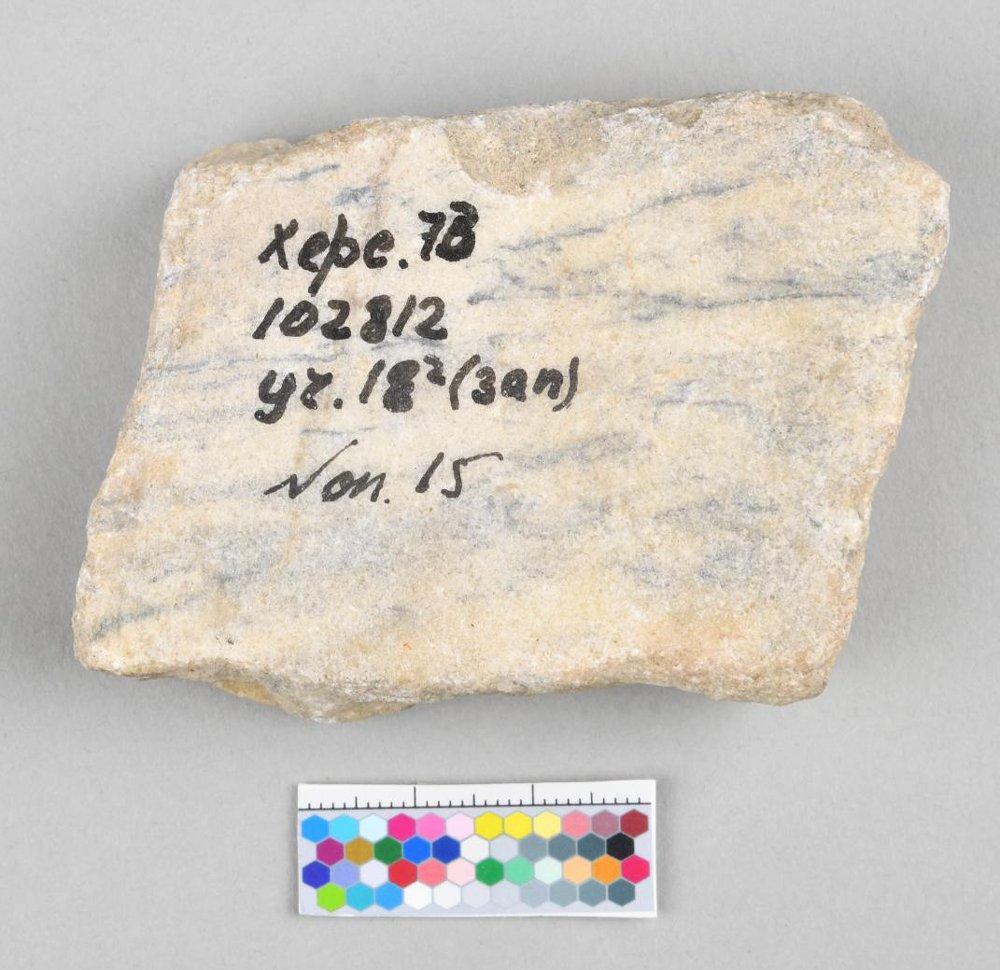 Херс. 73
102812
уч. 18² (зап)
Пом. 15